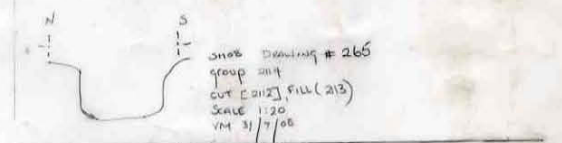 N S
SHOB DRAWING # 265
group 2114
CUT [2112], FILL (213)
SCALE 1:20
VM 31/7/08